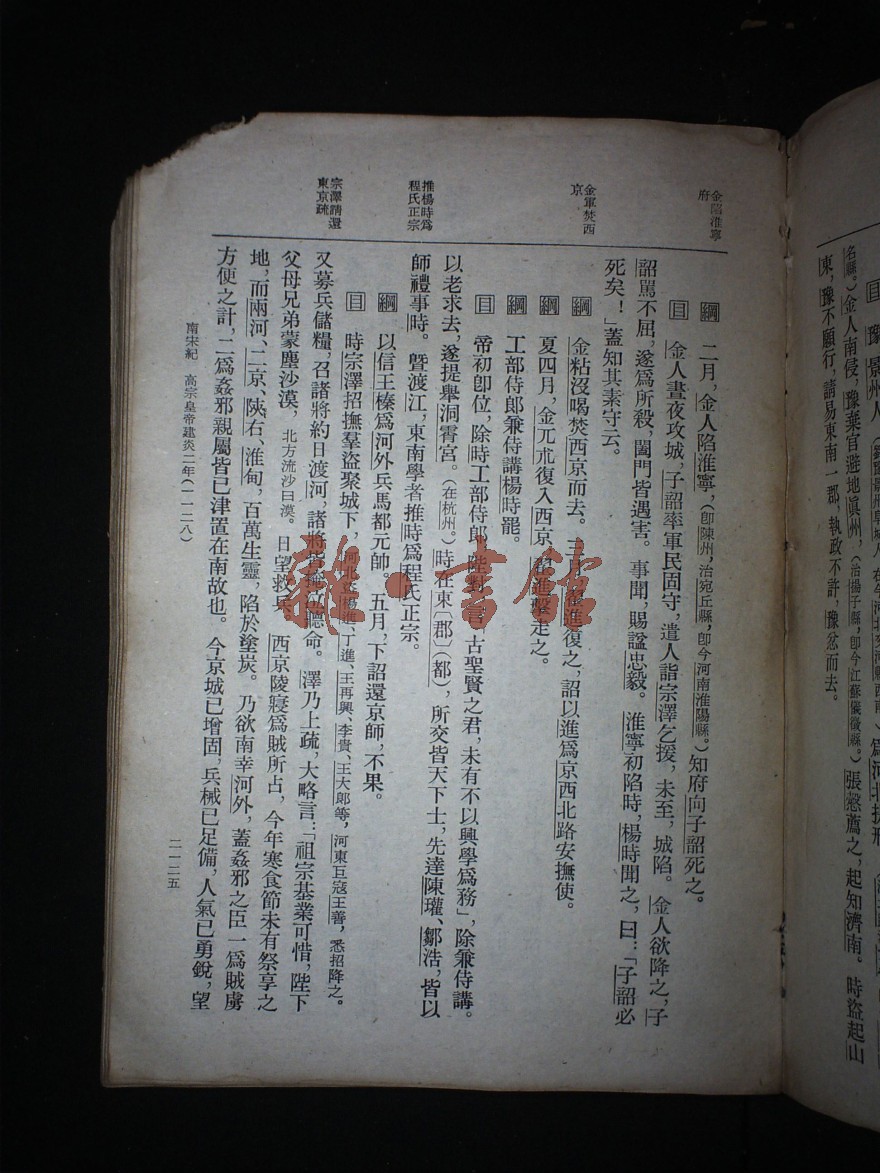 目 豫,景州人,
爲河北提刑。
名縣。)金人南侵,豫棄官避地眞州,(治揚子縣,卽今江蘇儀徵縣。)張慤薦之,起知濟南。時盜起山
東,豫不願行,請易東南一郡,執政不許,豫忿而去。
金陷淮寧
府
綱 二月,金人陷淮寧,(卽陳州,治宛丘縣,卽今河南淮陽縣。)知府向子韶死之。
目 金人晝夜攻城,子韶率軍民固守,遣人詣宗澤乞援,未至,城陷。金人欲降之,子
韶罵不屈,遂爲所殺,闔門皆遇害。事聞,賜諡忠毅。淮寧初陷時,楊時聞之,曰:「子韶必
死矣!」蓋知其素守云。
金軍焚西
京
綱 金粘沒喝焚西京而去。三月,翟進復之,詔以進爲京西北路安撫使。
綱 夏四月,金兀朮復入西京,翟進擊走之。
推楊時爲
程氏正宗
綱 工部侍郎兼侍講楊時罷。
目 帝初卽位,除時工部侍郎,陛對言「古聖賢之君,未有不以興學爲務」,除兼侍講。
以老求去,遂提舉洞霄宮。(在杭州。)時在東〔郡〕(都),所交皆天下士,先達陳瓘、鄒浩,皆以
師禮事時。曁渡江,東南學者推時爲程氏正宗。
宗澤請還
東京疏
綱 以信王榛爲河外兵馬都元帥。五月,下詔還京師,不果。
目 時宗澤招撫羣盜聚城下,河北楊進、丁進、王再興、李貴、王大郎等,河東巨寇王善,悉招降之。
又募兵儲糧,召諸將約日渡河,諸將皆掩泣聽命。澤乃上疏,大略言:「祖宗基業可惜,陛下
父母兄弟蒙塵沙漠,北方流沙曰漠。日望救兵。西京陵寢爲賊所占,今年寒食節未有祭享之
地,而兩河、二京、陝右、淮甸,百萬生靈,陷於塗炭。乃欲南幸河外,蓋姦邪之臣一爲賊虜
方便之計,二爲姦邪親屬皆已津置在南故也。今京城已增固,兵械已足備,人氣已勇銳,望
南宋紀 高宗皇帝建炎二年(一一二八)
二一二五
雜·書館